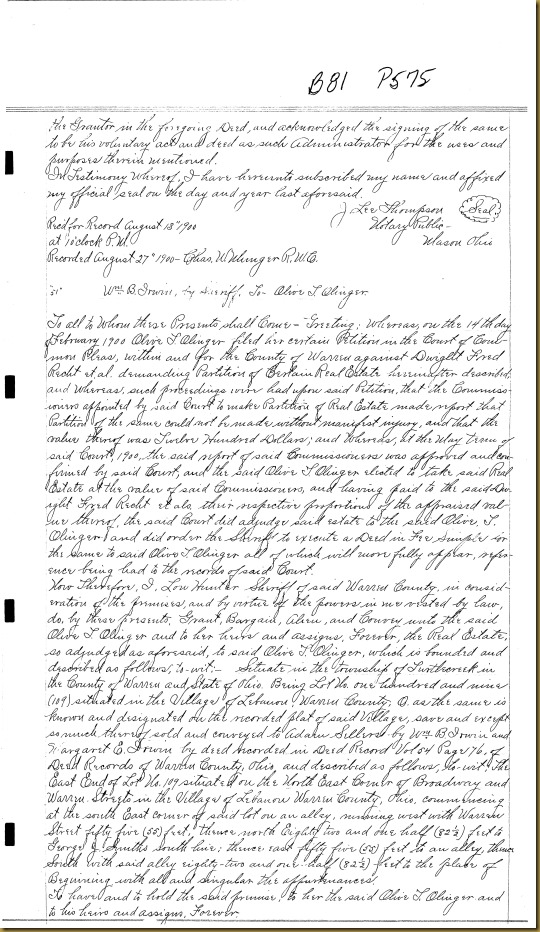 B81 P575
the Grantor in the foregoing Deed, and acknowledged the signing of the same
to be his voluntary act and deed as such Administrator for the uses and
purposes therein mentioned.
In Testimony Whereof, I have hereunto subscribed my name and affixed
my official seal on the day and year last aforesaid.
J Lee Thompson Seal
Rec'd for Record August 18" 1900 Notary Public-
at o'clock P.M. Mason Ohio
Recorded August 27" 1900- Chas. W. R.W.C.
Wm B. Irwin, by Sheriff, To- Olive T Olinger
To all to Whom these Presents, shall Come- Greeting: Whereas, on the 14th day
February 1900 Olive T Olinger filed her certain Petition in the Court of Com-
mon Pleas, within and for the County of Warren against Dwight Fred
Recht et al. demanding Partition of Certain Real Estate hereinafter described,
and Whereas, such proceedings were had upon said Petition, that the Commiss-
ioners appointed by said Court to make Partition of Real Estate made report that
Partition of the same could not be made without manifest injury, and that the
value thereof was Twelve Hundred Dollars; and Whereas, at the May term of
said Court, 1900, the said report of said Commissioners was approved and con-
firmed by said Court, and the said Olive T Olinger elected to take said Real
Estate at the value of said Commissioners, and having paid to the said Dw-
ight Fred Recht et als, their respective proportions of the appraised val-
ue thereof, the said Court did adjudge said estate to the said Olive, T.
Olinger and did order the Sheriff to execute a Deed in Fee Simple for
the same to said Olive T Olinger all of which will more fully appear, refer-
ence being had to the records of said Court.
Now Therefore, I, Lou Hunter Sheriff of said Warren County, in consid-
eration of the premises, and by virtue of the powers in me vested by law,
do, by these presents, Grant, Bargain, Alien, and Convey unto the said
Olive T Olinger and to her heirs and assigns, Forever, the Real Estate,
so adjudged as aforesaid, to said Olive T Olinger, which is bounded and
described as follows, to-wit:- Situate in the Township of Turtlecreek in
the County of Warren and State of Ohio. Being Lot No. one hundred and nine
(109) situated in the Village of Lebanon Warren County, O. as the same is
known and designated on the recorded plat of said Village, save and except
so much thereof sold and conveyed to Adam Sellers by Wm B Irwin and
Margaret E. Irwin by deed recorded in Deed Record Vol 54 Page 76, of
Deed Records of Warren County, Ohio, and described as follows, to-wit: The
East End of Lot No. 109 situated on the North East Corner of Broadway and
Warren Streets in the Village of Lebanon Warren County, Ohio, commencing
at the south East corner of said lot on an alley, running west with Warren
Street fifty five (55) feet; thence north Eighty two and one half (82½) feet to
George J. Smiths south line; thence east fifty five (55) feet to an alley, thence
South with said alley eighty-two and one-half (82½) feet to the place of
Beginning with all and singular the appurtenances.
To have and to hold the said premises to her the said Olive T. Olinger and
to his heirs and assigns, Forever